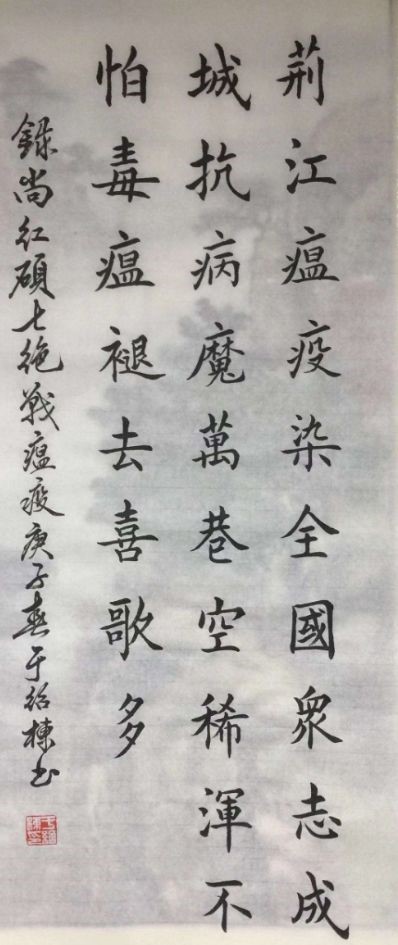 荊江瘟疫染全國衆志成
城抗病魔萬巷空稀渾不
怕毒瘟褪去喜歌多
錄尚紅碩七絕戰瘟疫庚子春于紹棟书